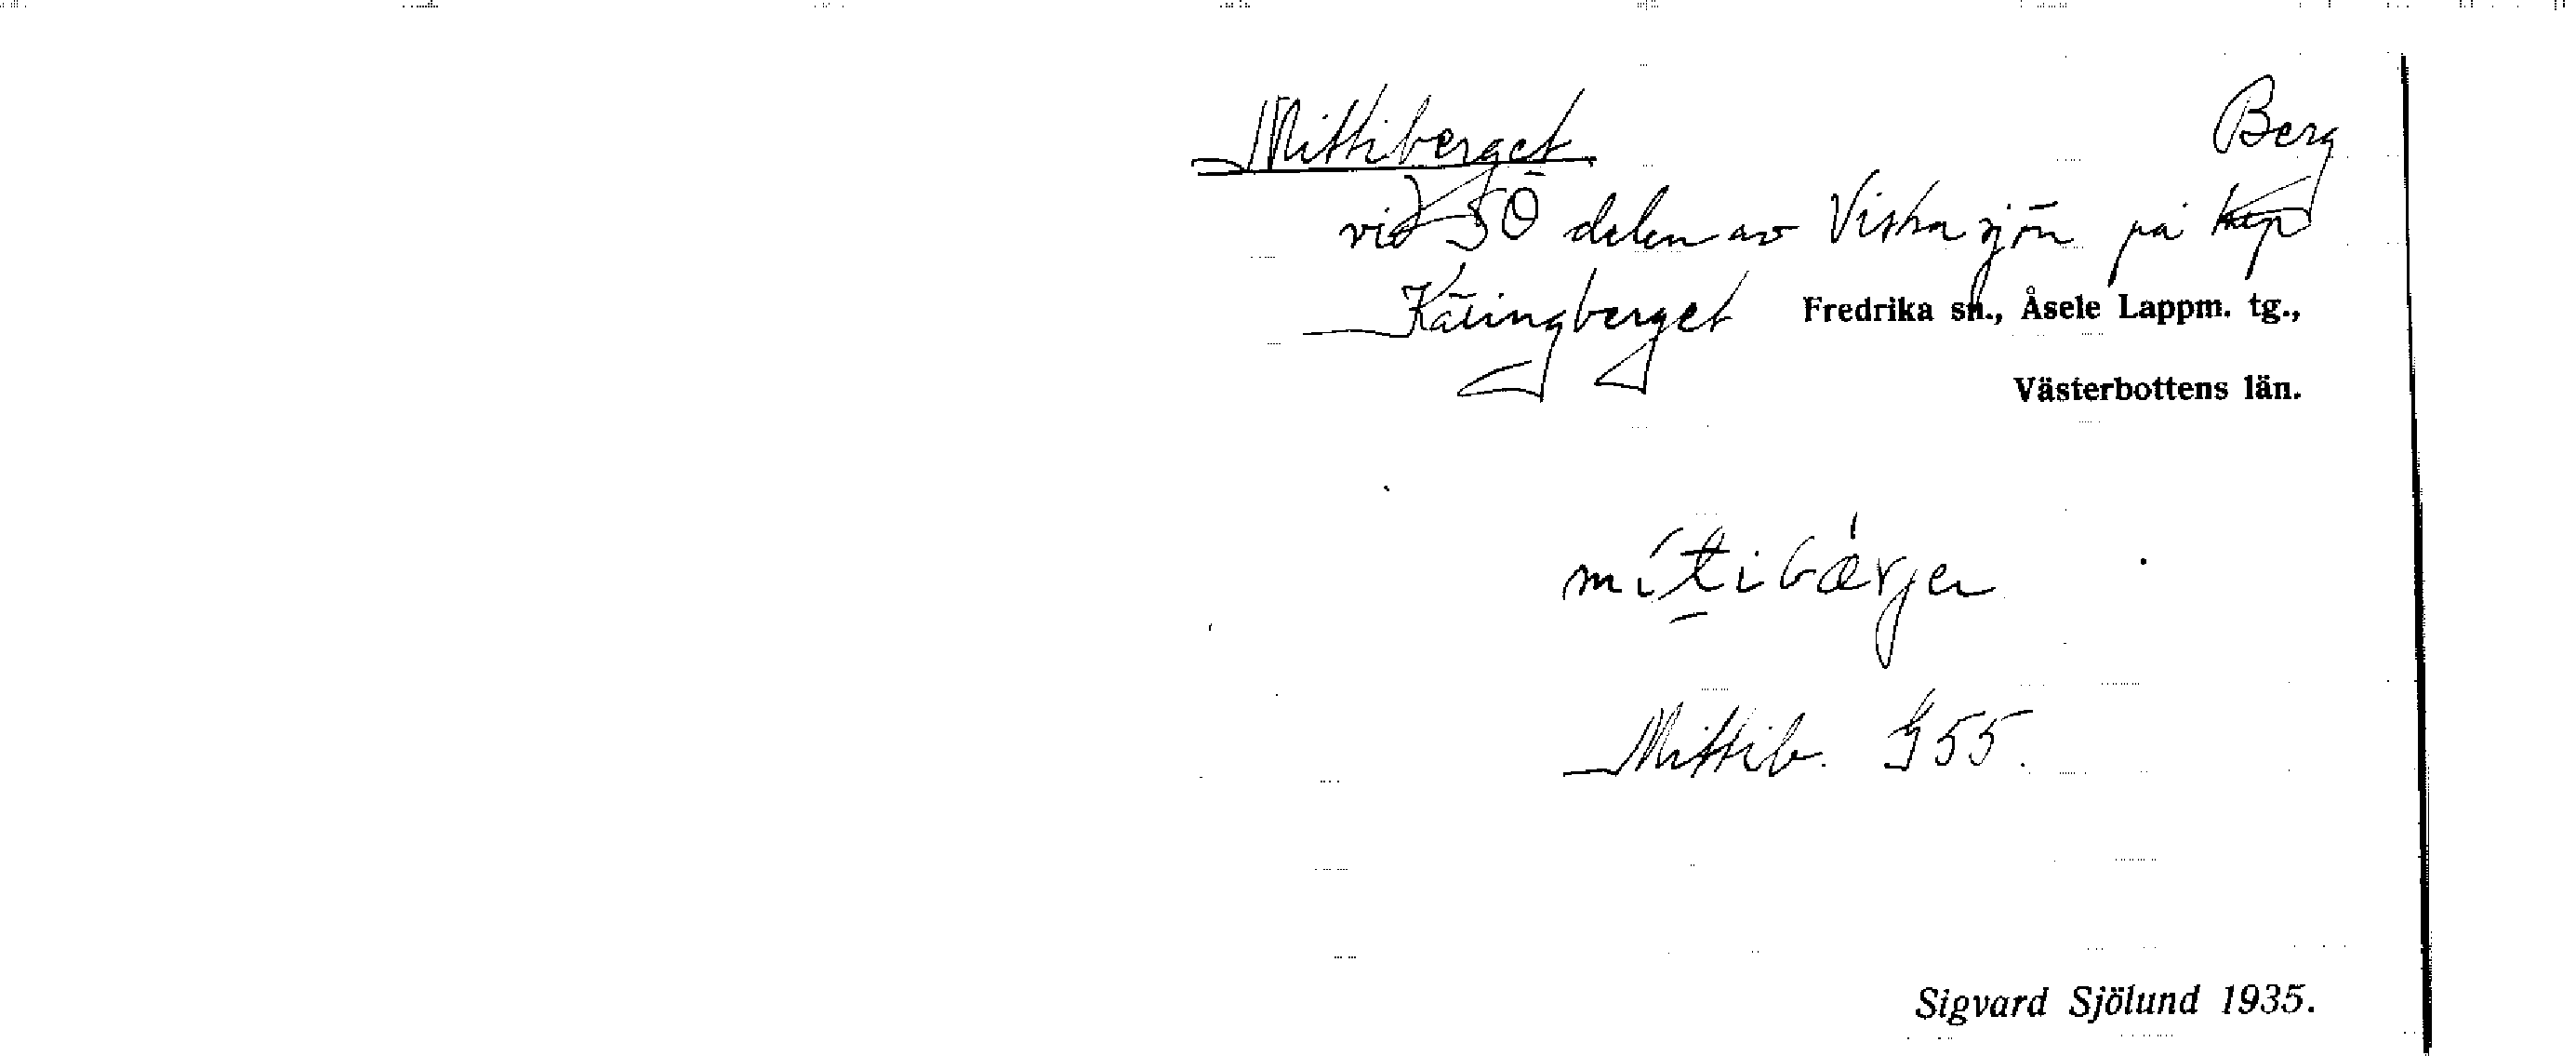 Mittiberget Berg
vid SÖ delen av Viskasjön på
Käringberget Fredrika sn., Åsele Lappm. tg.,
Västerbottens län.
mítibǽrjen
Mittib. G 55.
Sigvard Sjölund 1935.